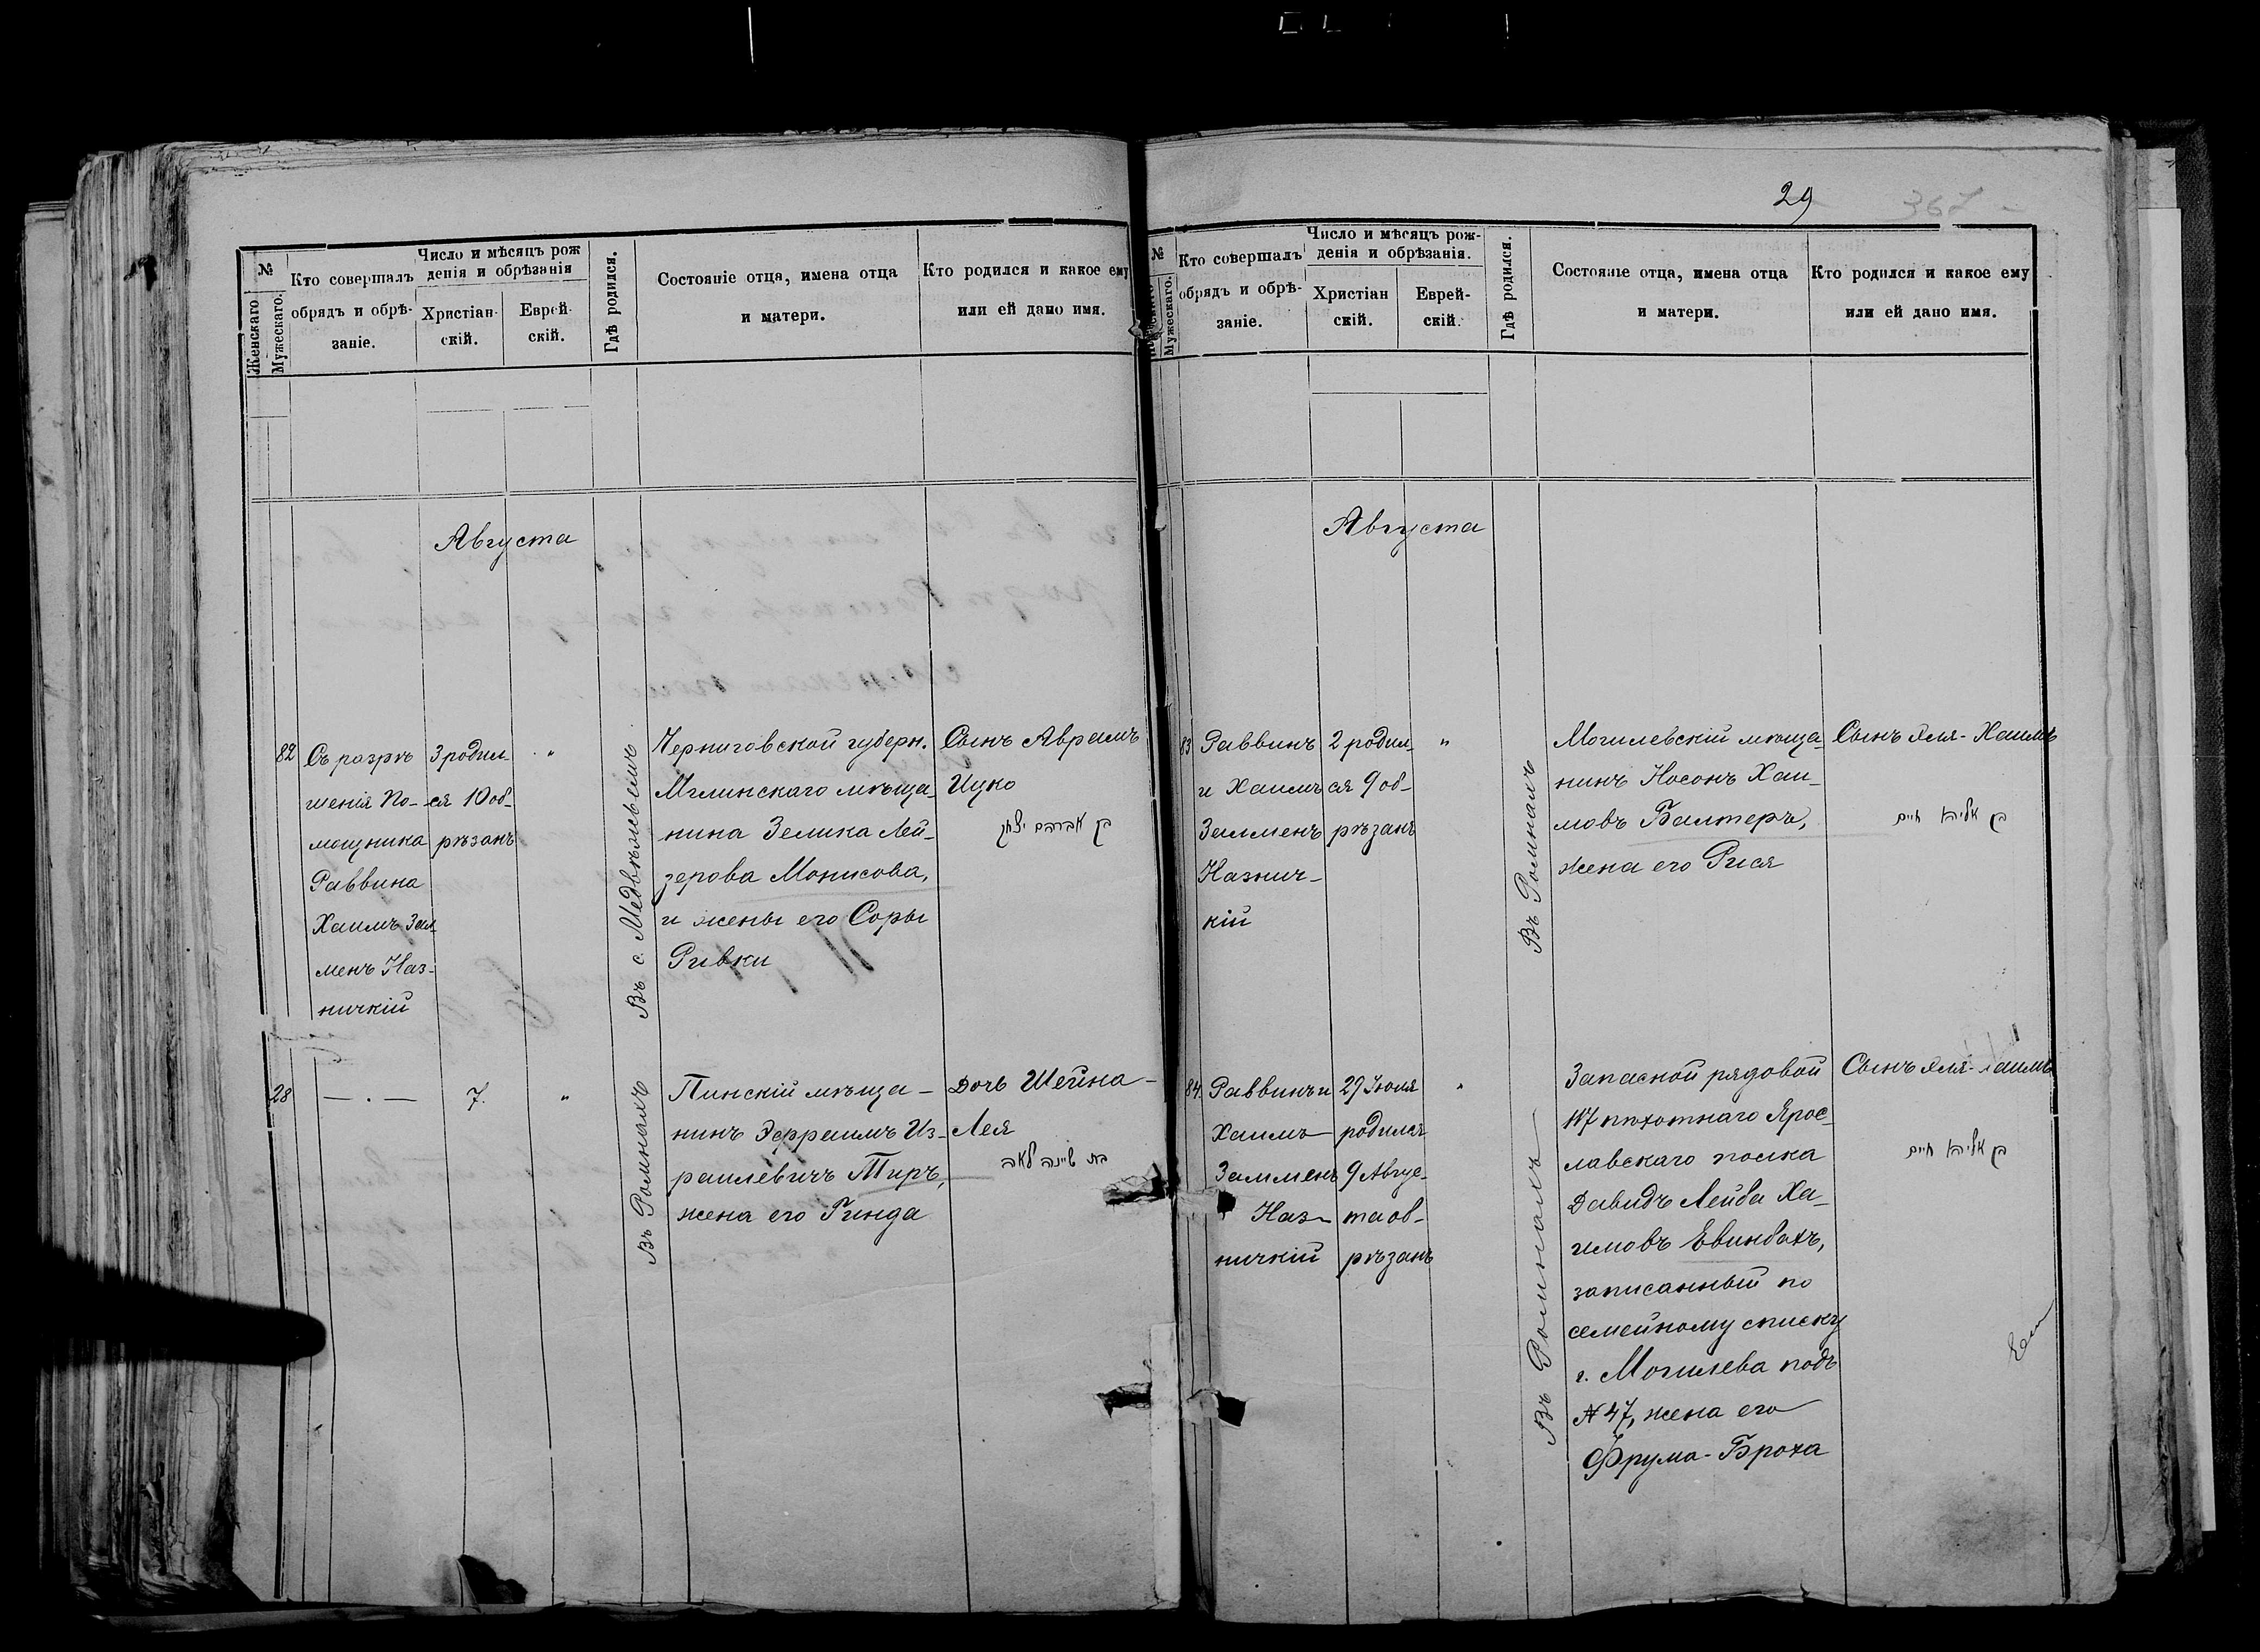 29
№
Женскаго
Мужескаго.
Кто совершалъ
обрядъ и обрѣ-
заніе.
Число и мѣсяцъ рож
денія и обрѣзанія
Христіан-
скій.
Еврей-
скій.
Гдѣ родился.
Состояніе отца, имена отца
и матери.
Кто родился и какое ему
или ей дано имя.
Августа
82
Съ разрѣ
шенія по-
мощника
Раввина
Хаимъ Зал
менъ Наз-
ничкій
3 родил-
ся 10 об-
рѣзанъ
"
Въ с. Медвѣжьемъ
Черниговской губерн.
Мглинскаго мѣща-
нина Зелика Лей-
зерова Монисова,
и жены его Соры
Ривки
Сынъ Аврамъ
Ицко
בן אברהם יצחק
28
— . —
7.
"
Въ Ромнахъ
Пинскій мѣща-
нинъ Эфраимъ Из-
раилевичъ Тиръ,
жена его Гинда
Дочь Шейна-
Лея
בת שיינה לאה
№
Мужескаго.
Кто совершалъ
обрядъ и обрѣ-
заніе.
Число и мѣсяцъ рож-
денія и обрѣзанія.
Христіан
скій.
Еврей-
скій.
Гдѣ родился.
Состояніе отца, имена отца
и матери.
Кто родился и какое ему
или ей дано имя.
Августа
83
Раввинъ
и Хаимъ
Залменъ
Назнич-
кій
2 родил-
ся 9 об-
рѣзанъ
"
Въ Ромнахъ
Могилевскій мѣща-
нинъ Носонъ Хаи-
мовъ Балтеръ,
жена его Рися
Сынъ Эля-Хаимъ
בן אליהו חיים
84.
Раввинъ и
Хаимъ
Залменъ
Наз-
ничкій
29 Іюля
родился
9 Авгус-
та об-
рѣзанъ
"
Въ Ромнахъ
Запасной рядовой
117 пѣхотнаго Ярос-
лавскаго полка
Давидъ Лейба Ха-
имовъ Евинбахъ,
записанный по
семейному списку
г. Могилева подъ
№ 47, жена его
Фрума-Броха
Сынъ Эля-Хаимъ
בן אליהו חיים